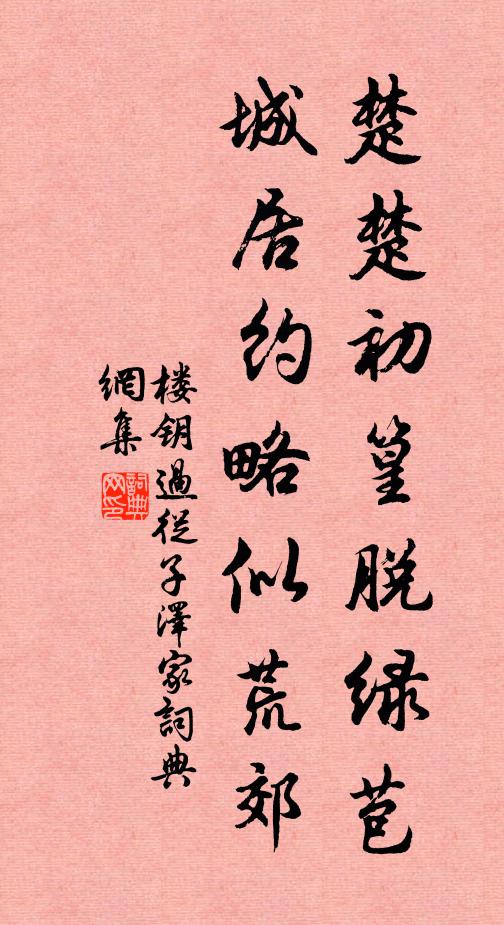 楚楚初篁脱绿苞
城居约略似荒郊
楼钥過從子澤家詞典
網集
詞典網印